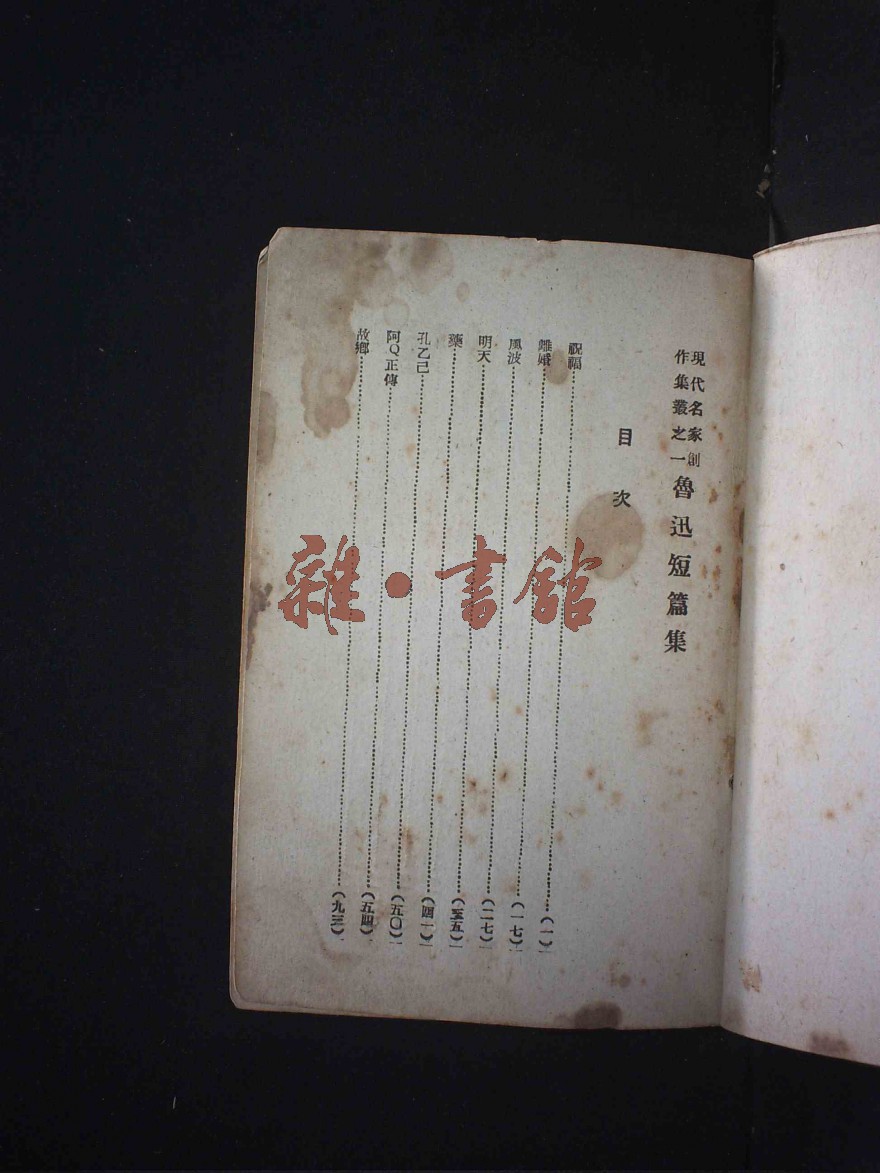 現代名家創
作集叢之一
魯迅短篇集
目次
祝福……(一)
離婚……(一七)
風波……(二七)
明天……(三五)
藥……(四一)
孔乙己……(五〇)
阿Q正傳……(五四)
故鄉……(九三)
雜·書館